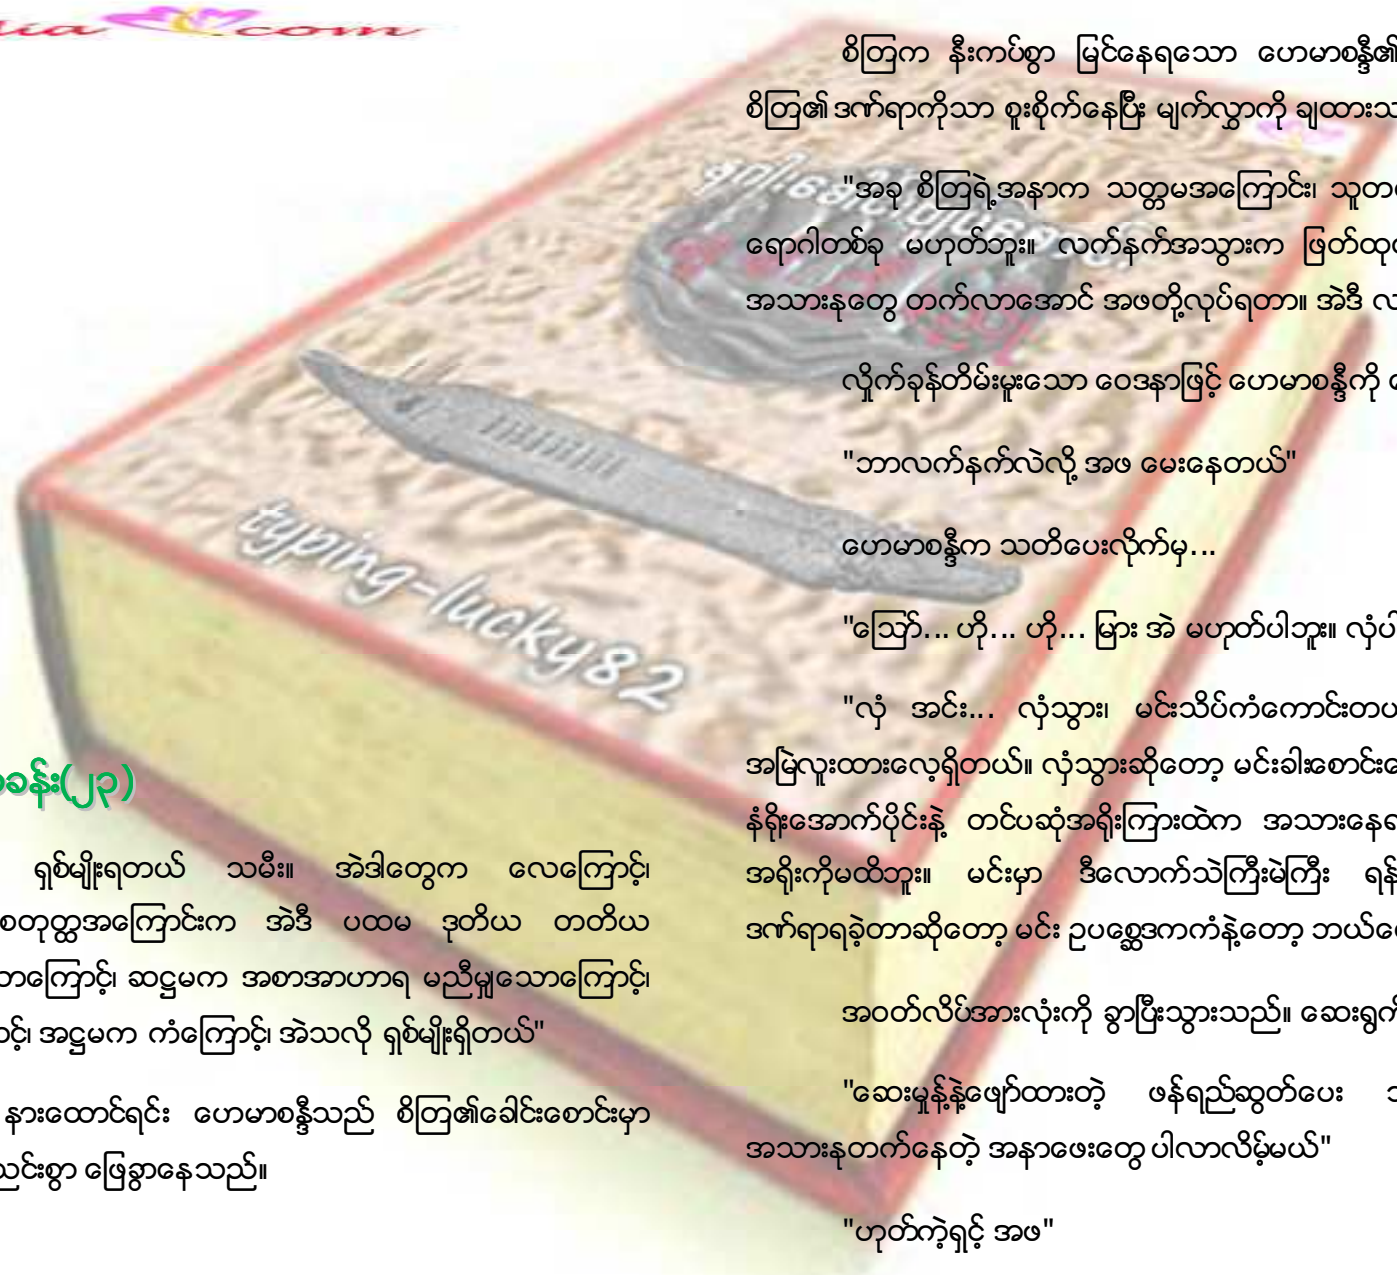 com
ခန်း(၂၃)
ရှစ်မျိုးရတယ် သမီး။ အဲဒါတွေက လေကြောင့်၊
စတုတ္ထအကြောင်းက အဲဒီ ပထမ ဒုတိယ တတိယ
ကြောင့်၊ ဆဋ္ဌမက အစာအာဟာရ မညီမျှသောကြောင့်၊
အဋ္ဌမက ကံကြောင့်၊ အဲသလို ရှစ်မျိုးရှိတယ်"
နားထောင်ရင်း ဟေမာစန္ဒီသည် စိတြ၏ခေါင်းစောင်းမှာ
ဖြေခွာနေသည်။
စိတြက နီးကပ်စွာ မြင်နေရသော ဟေမာစန္ဒီ၏
စိတြ၏ ဒဏ်ရာကိုသာ စူးစိုက်နေပြီး မျက်လွှာကို ချထားသ
"အခု စိတြရဲ့အနာက သတ္တမအကြောင်း၊ သူတ
ရောဂါတစ်ခု မဟုတ်ဘူး။ လက်နက်အသွားက ဖြတ်ထု
အသားနုတွေ တက်လာအောင် အဖတို့လုပ်ရတာ။ အဲဒီ လ
လှိုက်ခုန်တိမ်းမူးသော ဝေဒနာဖြင့် ဟေမာစန္ဒီကို
"ဘာလက်နက်လဲလို့ အဖ မေးနေတယ်"
ဟေမာစန္ဒီက သတိပေးလိုက်မှ...
"ဩော်... ဟို... ဟို... မြား အဲ မဟုတ်ပါဘူး။ လှံပါ
"လှံ အင်း... လှံသွား၊ မင်းသိပ်ကံကောင်းတယ
အမြဲလူးထားလေ့ရှိတယ်။ လှံသွားဆိုတော့ မင်းခါးစောင်း
နံရိုးအောက်ပိုင်းနဲ့ တင်ပဆုံအရိုးကြားထဲက အသားနေရ
အရိုးကိုမထိဘူး။ မင်းမှာ ဒီလောက်သဲကြီးမဲကြီး ရန်
ဒဏ်ရာရခဲ့တာဆိုတော့ မင်း ဥပစ္ဆေဒကကံနဲ့တော့ ဘယ်
အဝတ်လိပ်အားလုံးကို ခွာပြီးသွားသည်။ ဆေးရွက်
"ဆေးမှုန့်နဲ့ဖျော်ထားတဲ့ ဖန်ရည်ဆွတ်ပေး
အသားနုတက်နေတဲ့ အနာဖေးတွေ ပါလာလိမ့်မယ်"
"ဟုတ်ကဲ့ရှင့် အဖ"
typing-lucky82